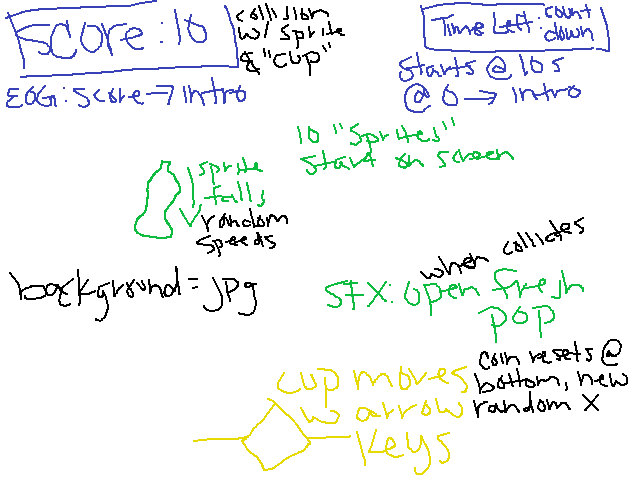 SCORE: 10
collision
w/ sprite
& "cup"
EOG: Score → intro
Time Left: count
down
Starts @ 10s
@ 0 → intro
10 "Sprites"
start on screen
sprite
falls
random
speeds
background = jpg
when collides
SFX: open fresh
pop
cup moves
w arrow
keys
coin resets @
bottom, new
random X